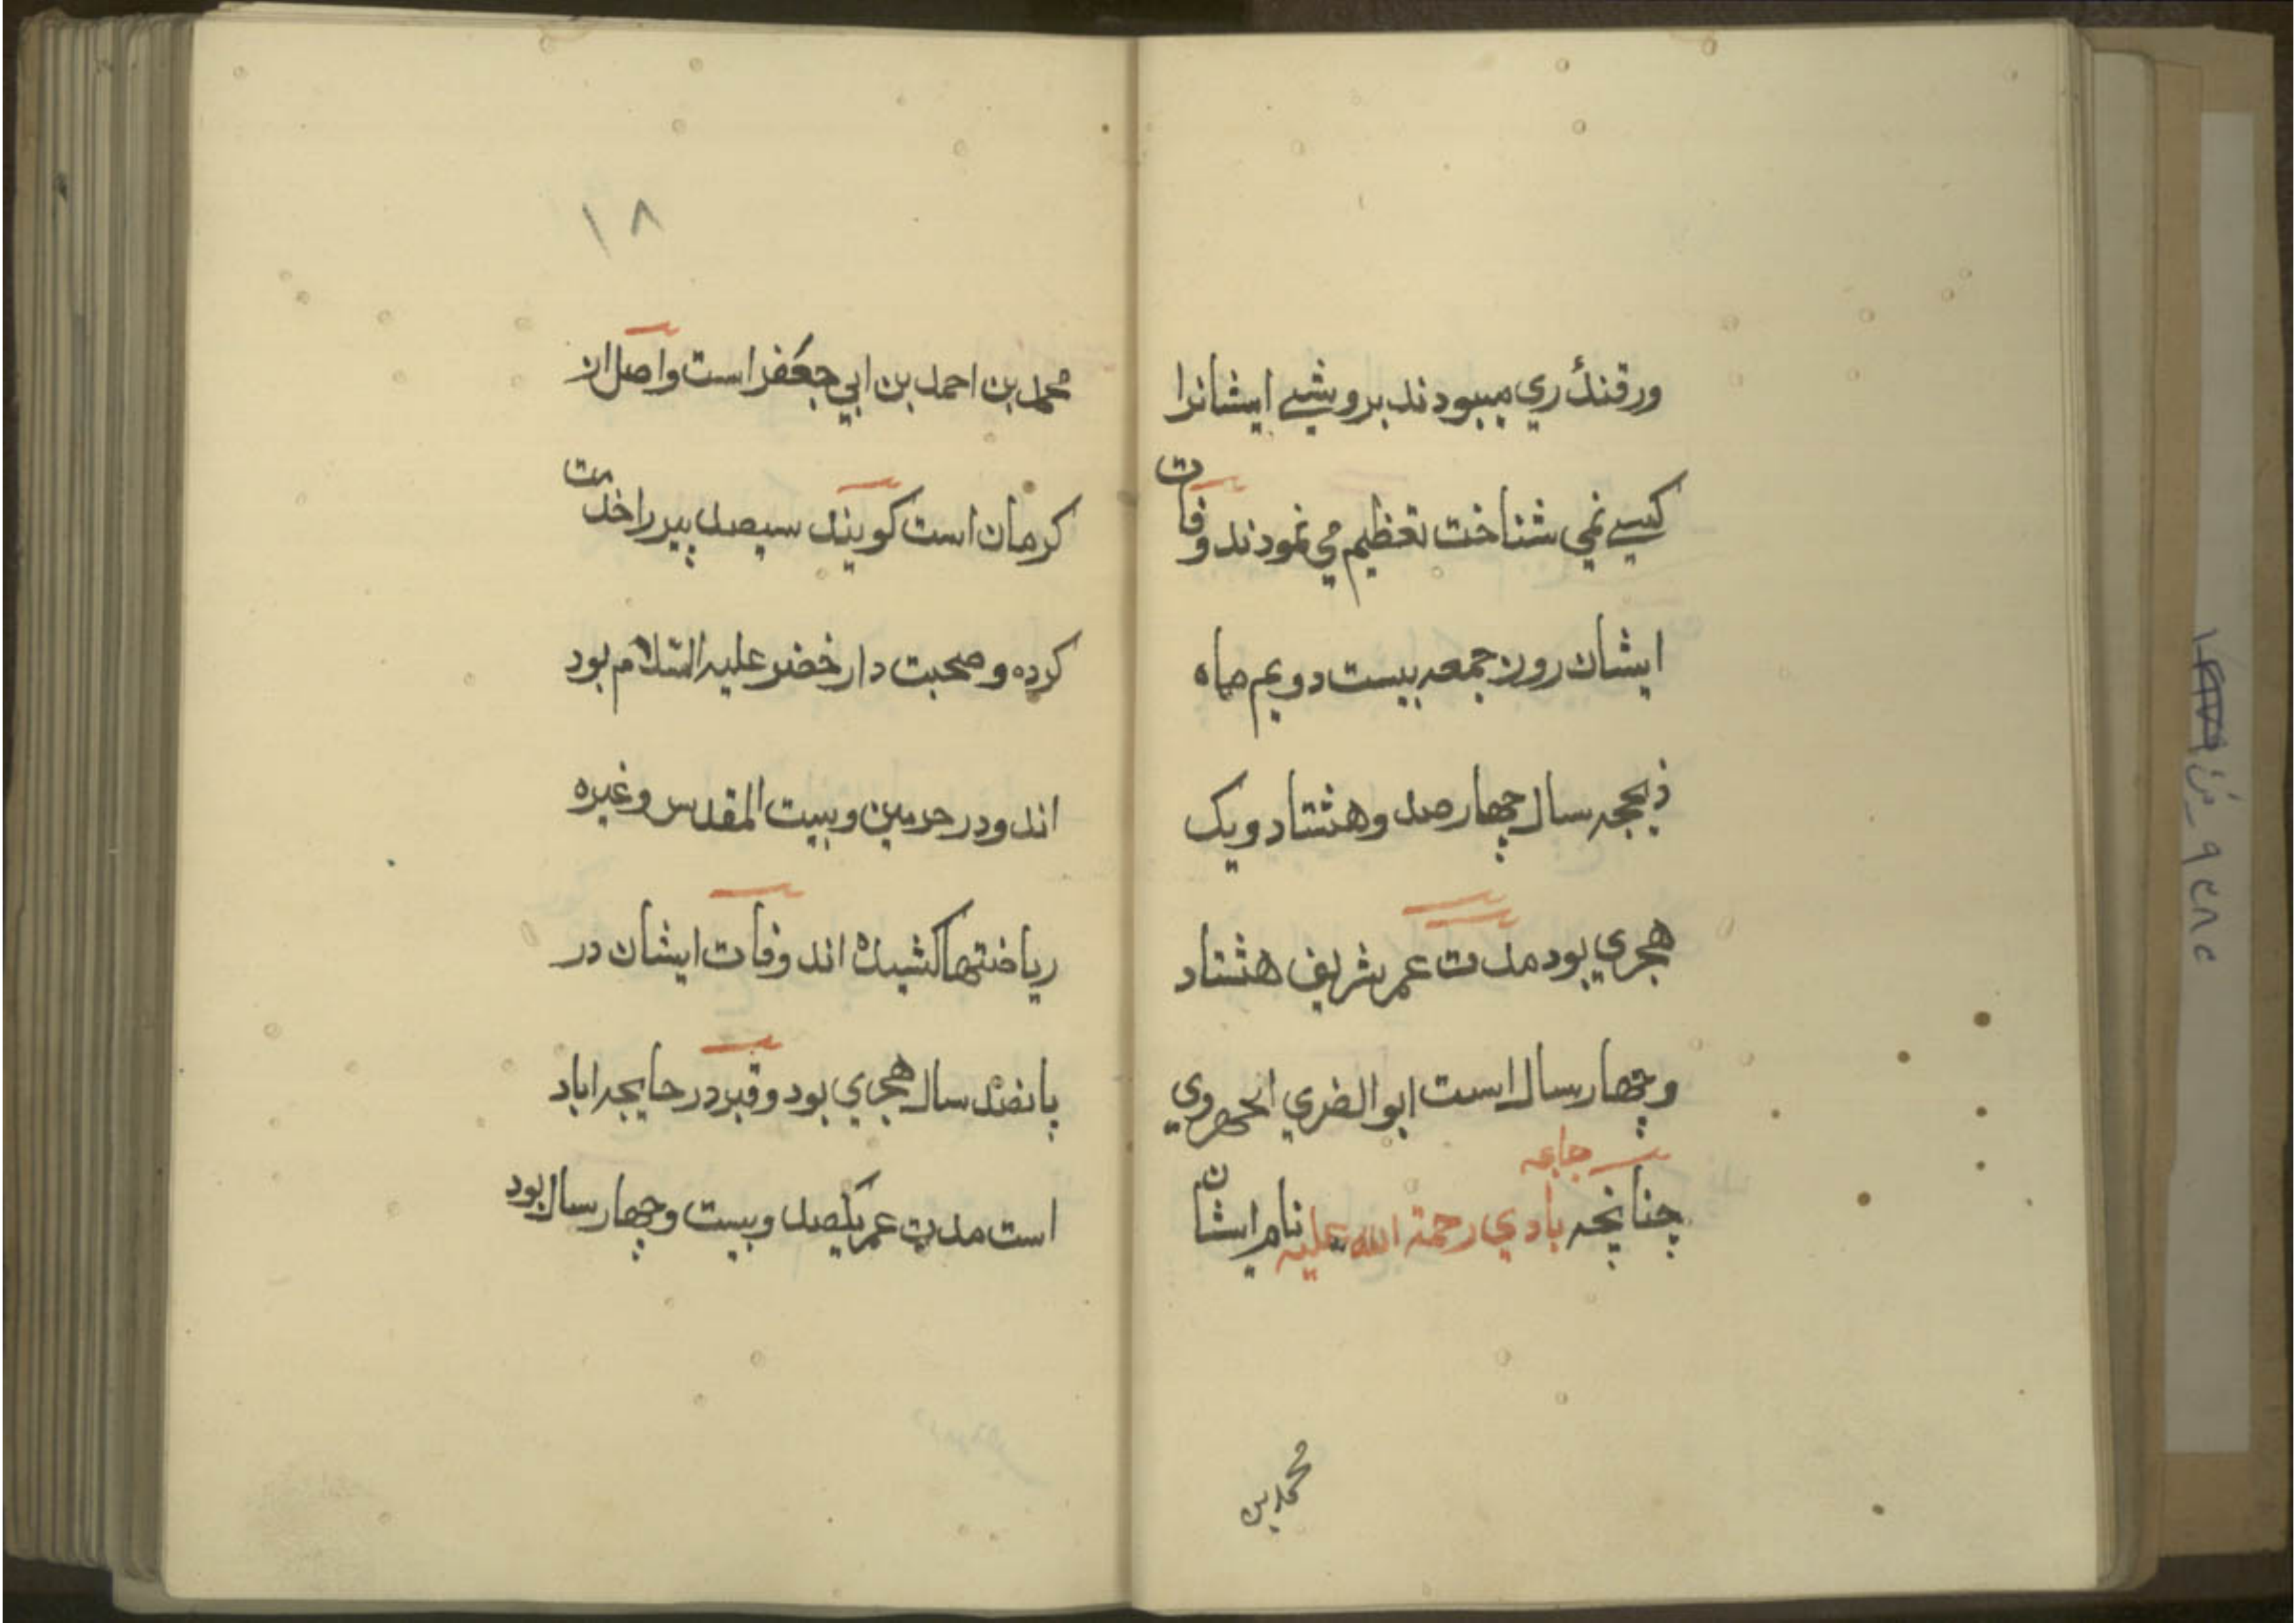 ورقندۀ ري ميبودند بروشيے ايشانرا
كسيے نمي شناخت تعظيم مي نمودند وفات
ايشان روز جمعه بيست دويم ماه
ذيحجه سال چهار صد و هشتاد ويک
هجري بود مدت عمر شريف هشتاد
وچهار سال است ابوالضري الحهروي
جاعه
چنانچه بادي رحمة الله عليه نام ايشان
محمد بن
١٨
محمد بن احمد بن ابي جعفر است واصل از
كرمان است كويند سيصد پير را خدمت
كرده و صحبت دار خضر عليه السلام بود
اند ودر حرمين وبيت المقدس وغيره
رياضتها كشيده اند وفات ايشان در
پانصد سال هجري بود وقبر در حايجه اباد
است مدت عمر يكصد وبيست وچهار سال بود